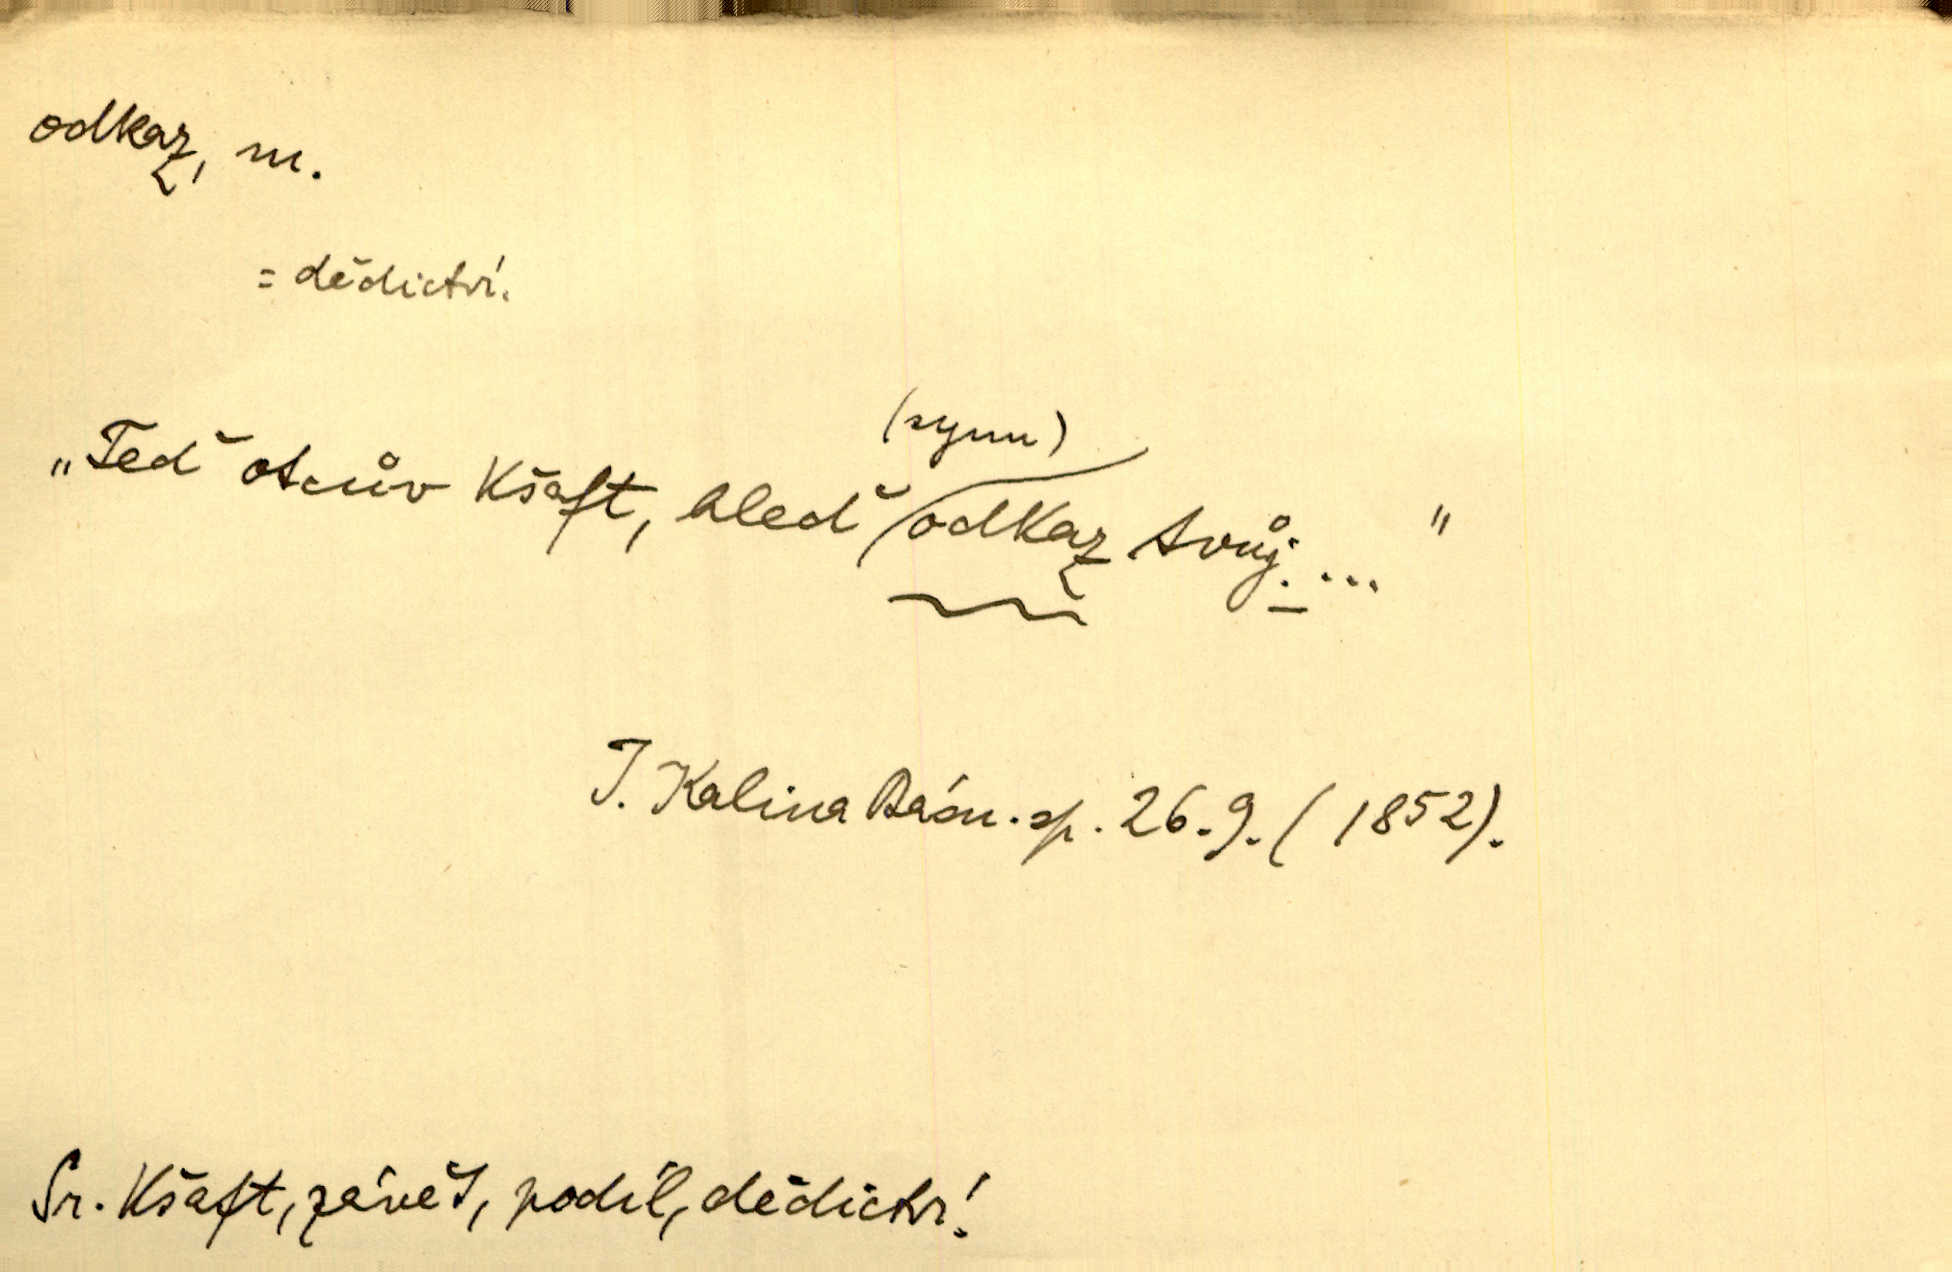 odkaz, m.
= dědictví.
(synu)
„Teď otcův kšaft, hleď odkaz tvůj. ..."
J. Kalina Básn. sp. 26.9. (1852).
Sr. kšaft, závěť, podíl, dědictví.